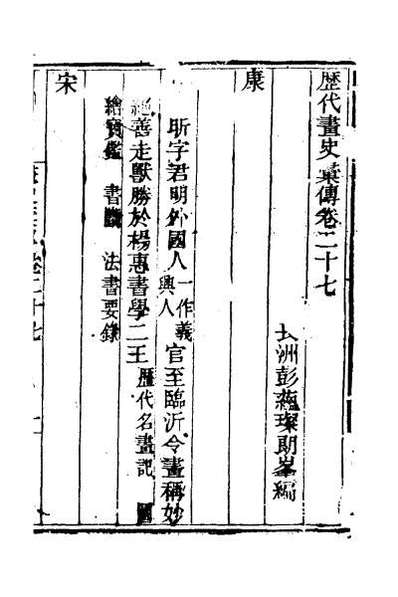 歷代畫史彙傳卷二十七
長洲彭蘊璨朗峯編
康
昕字君明外國人一作義興人官至臨沂令畫稱妙
絕善走獸勝於楊惠書學二王歷代名畫記 圖
繪寶鑑 書斷 法書要錄
宋